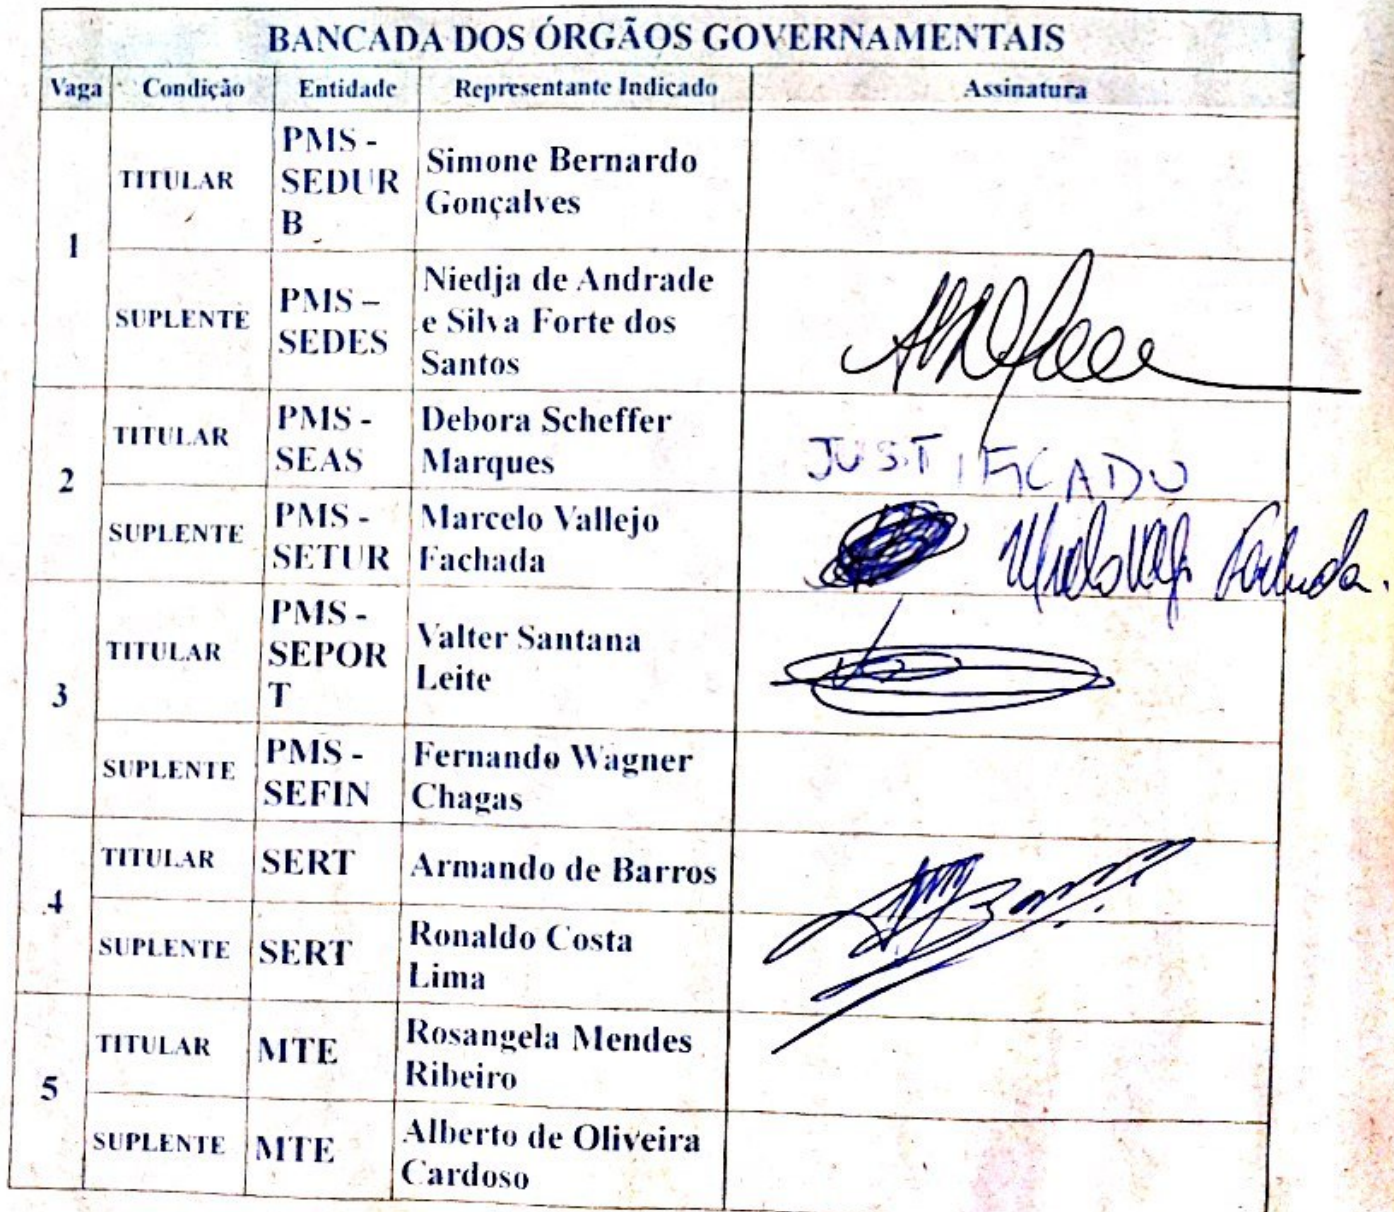 BANCADA DOS ÓRGÃOS GOVERNAMENTAIS
Vaga Condição Entidade Representante Indicado Assinatura
1
TITULAR
PMS -
SEDUR
B
Simone Bernardo
Gonçalves
SUPLENTE
PMS –
SEDES
Niedja de Andrade
e Silva Forte dos
Santos
2
TITULAR
PMS -
SEAS
Debora Scheffer
Marques
JUSTIFICADO
SUPLENTE
PMS -
SETUR
Marcelo Vallejo
Fachada
3
TITULAR
PMS -
SEPOR
T
Valter Santana
Leite
SUPLENTE
PMS -
SEFIN
Fernando Wagner
Chagas
4
TITULAR
SERT
Armando de Barros
SUPLENTE
SERT
Ronaldo Costa
Lima
5
TITULAR
MTE
Rosangela Mendes
Ribeiro
SUPLENTE
MTE
Alberto de Oliveira
Cardoso